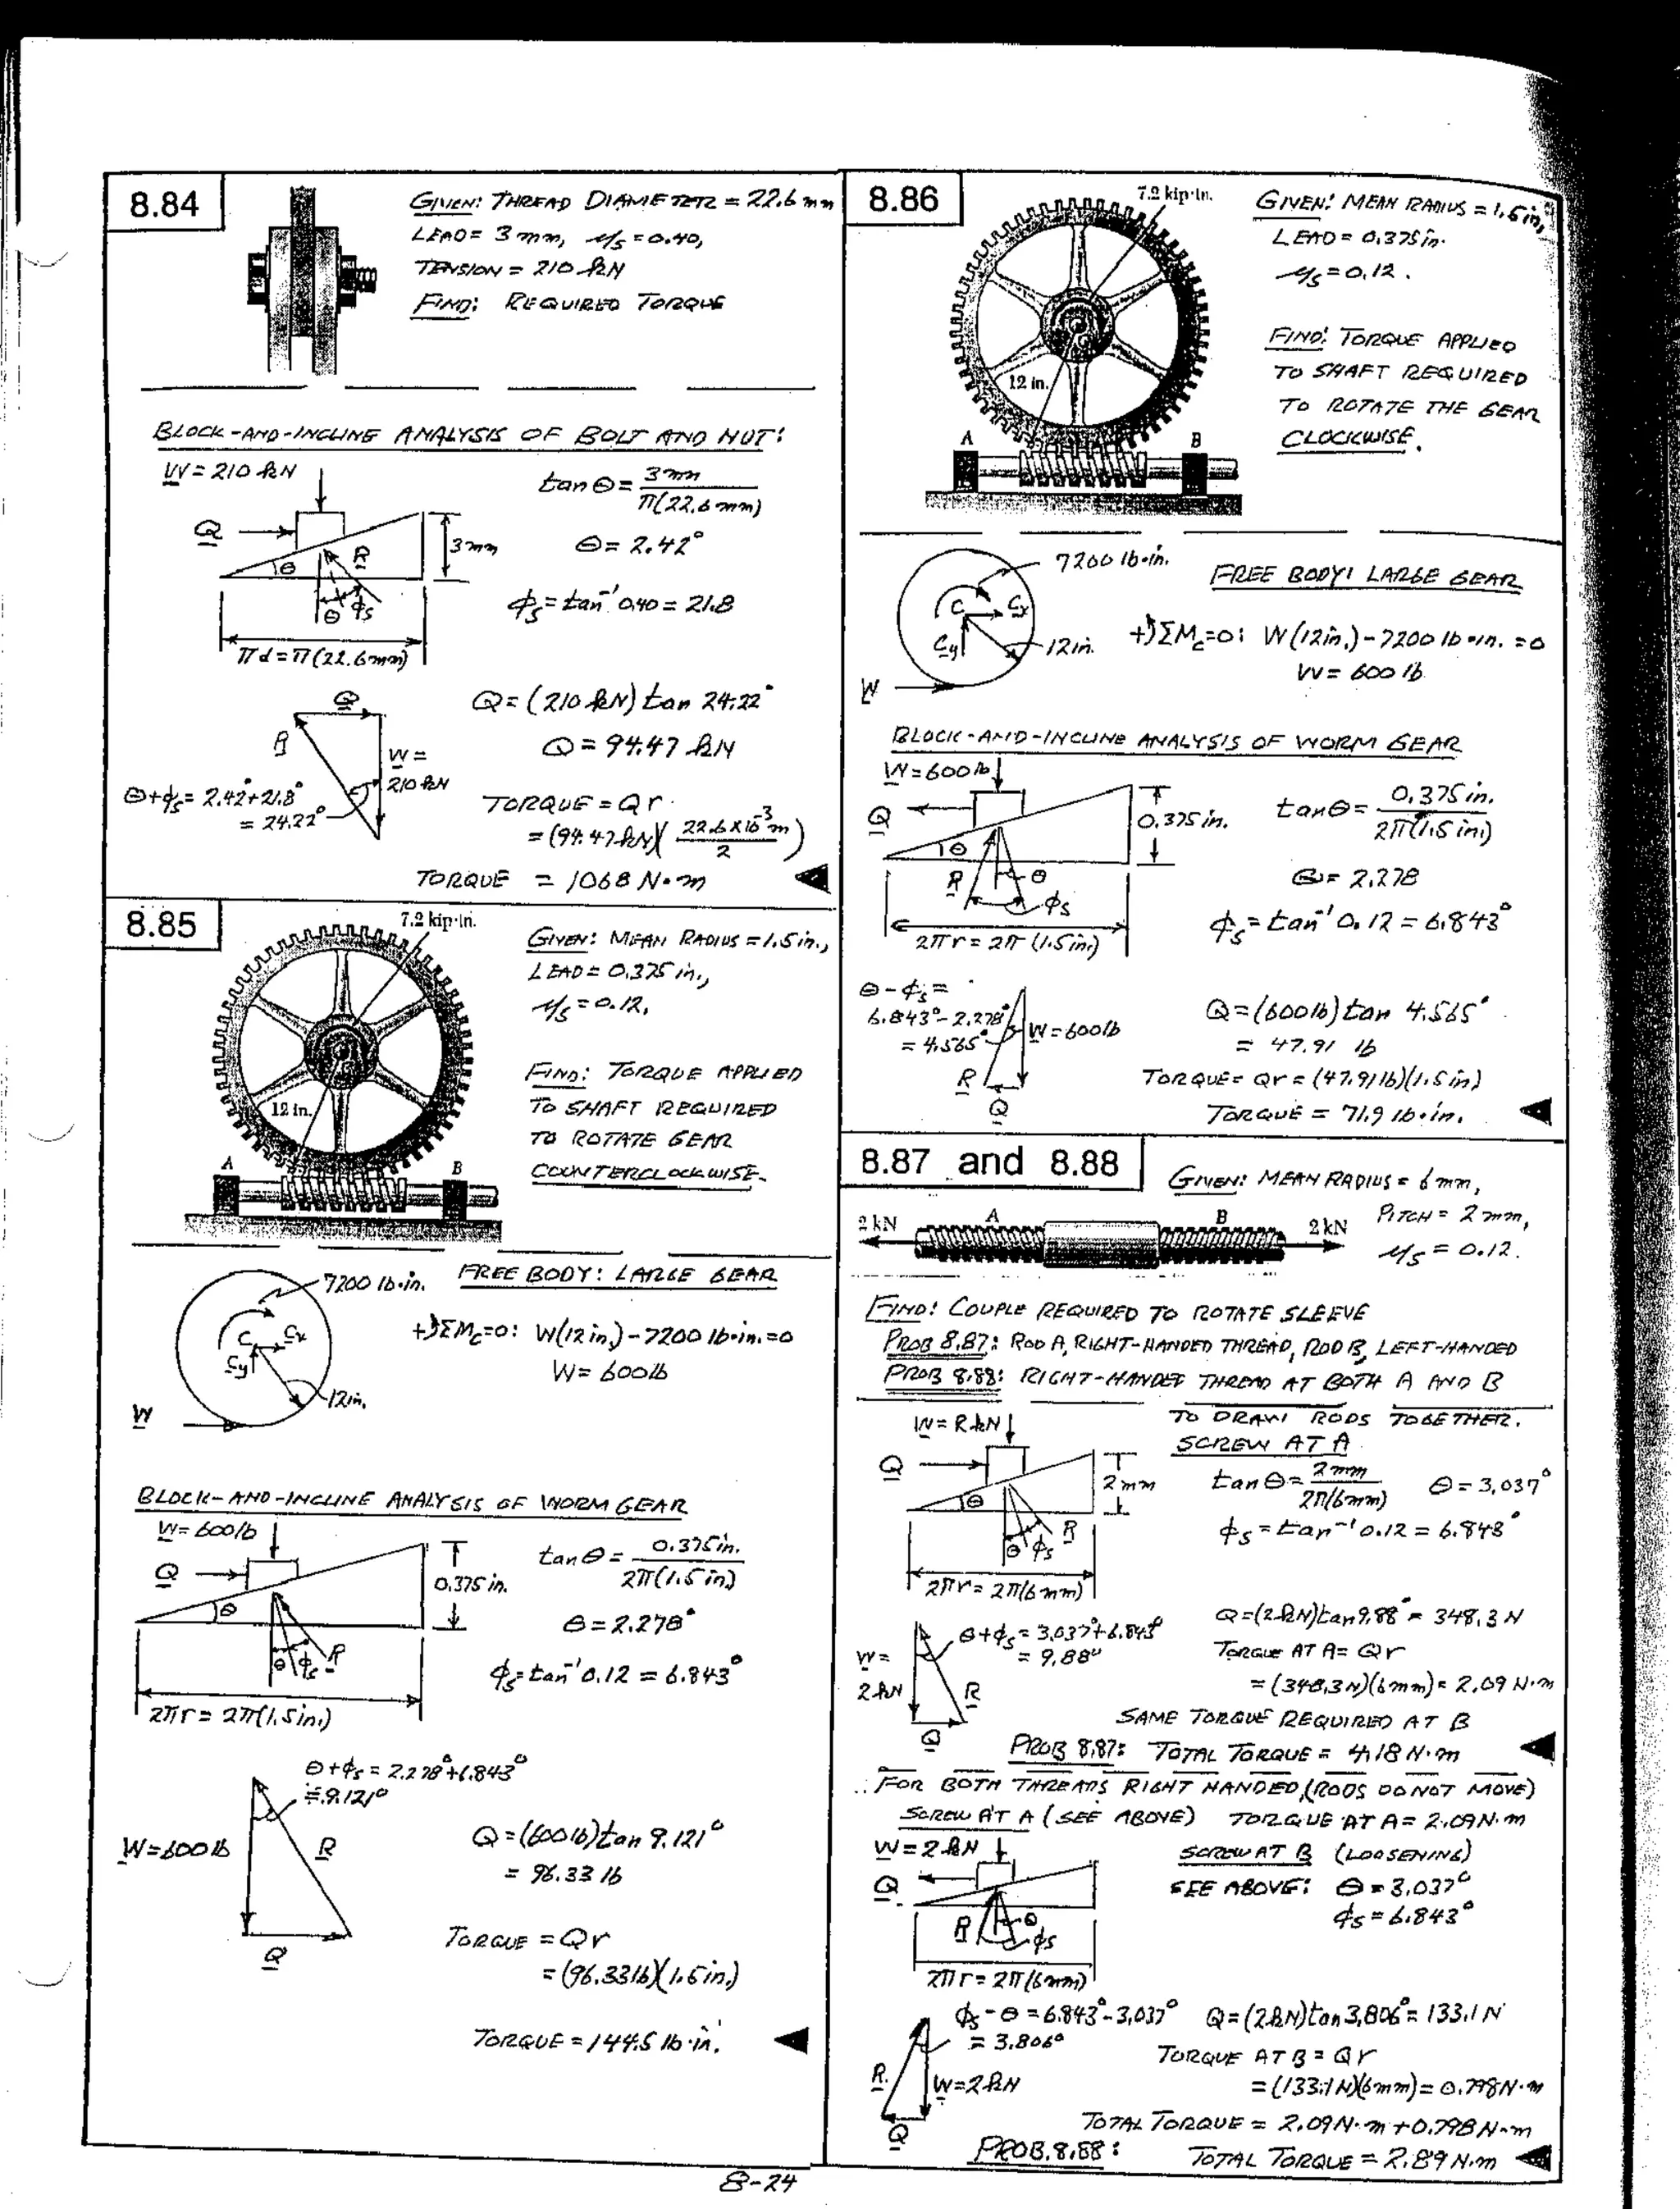 8.84
GIVEN: THREAD DIAMETER = 22.6 mm
LEAD = 3 mm, μs = 0.40,
TENSION = 210 kN
FIND: REQUIRED TORQUE
BLOCK-AND-INCLINE ANALYSIS OF BOLT AND NUT:
W = 210 kN
Q
θ
R
θ φs
3mm
πd = π(22.6mm)
tan θ = 3mm / π(22.6 mm)
θ = 2.42°
φs = tan⁻¹ 0.40 = 21.8
Q
R
W =
210 kN
θ+φs = 2.42°+21.8°
= 24.22°
Q = (210 kN) tan 24.22°
Q = 94.47 kN
TORQUE = Qr
= (94.47 kN)(22.6×10⁻³m / 2)
TORQUE = 1068 N·m
8.85
7.2 kip·in.
12 in.
A
B
GIVEN: MEAN RADIUS = 1.5 in.,
LEAD = 0.375 in.,
μs = 0.12.
FIND: TORQUE APPLIED
TO SHAFT REQUIRED
TO ROTATE GEAR
COUNTERCLOCKWISE.
7200 lb·in.
FREE BODY: LARGE GEAR
C
Cx
Cy
12in.
W
+↺ΣMc=0: W(12in.)-7200 lb·in.=0
W = 600lb
BLOCK-AND-INCLINE ANALYSIS OF WORM GEAR
W = 600lb
Q
θ
0.375 in.
θ φs R
2πr = 2π(1.5in.)
tan θ = 0.375in. / 2π(1.5 in.)
θ = 2.278°
φs = tan⁻¹ 0.12 = 6.843°
θ+φs = 2.278°+6.843°
= 9.121°
W=600lb
R
Q
Q = (600 lb) tan 9.121°
= 96.33 lb
TORQUE = Qr
= (96.33lb)(1.5in.)
TORQUE = 144.5 lb·in.
8.86
7.2 kip·in.
12 in.
A
B
GIVEN: MEAN RADIUS = 1.5in,
LEAD = 0.375in.
μs = 0.12.
FIND: TORQUE APPLIED
TO SHAFT REQUIRED
TO ROTATE THE GEAR
CLOCKWISE.
7200 lb·in.
FREE BODY: LARGE GEAR
C
Cx
Cy
12in.
W
+↺ΣMc=0: W(12in.)-7200 lb·in. = 0
W = 600 lb
BLOCK-AND-INCLINE ANALYSIS OF WORM GEAR
W=600lb
Q
θ
0.375in.
R θ
φs
2πr = 2π (1.5in.)
tan θ = 0.375in. / 2π(1.5in.)
θ = 2.278
φs = tan⁻¹ 0.12 = 6.843°
θ-φs =
6.843°-2.278°
= 4.565°
W=600lb
R
Q
Q = (600lb) tan 4.565°
= 47.91 lb
TORQUE = Qr = (47.91 lb)(1.5in)
TORQUE = 71.9 lb·in.
8.87 and 8.88
GIVEN: MEAN RADIUS = 6mm,
PITCH = 2mm,
μs = 0.12.
2 kN
A
B
2 kN
FIND: COUPLE REQUIRED TO ROTATE SLEEVE
PROB 8.87: ROD A, RIGHT-HANDED THREAD, ROD B, LEFT-HANDED
PROB 8.88: RIGHT-HANDED THREAD AT BOTH A AND B
TO DRAW RODS TOGETHER.
W = R kN
SCREW AT A
Q
θ
2mm
θ φs R
2πr = 2π(6mm)
tan θ = 2mm / 2π(6mm) θ = 3.037°
φs = tan⁻¹ 0.12 = 6.843°
θ+φs = 3.037°+6.843°
= 9.88°
W =
2 kN
R
Q
Q = (2 kN) tan 9.88° = 348.3 N
TORQUE AT A = Qr
= (348.3 N)(6mm) = 2.09 N·m
SAME TORQUE REQUIRED AT B
PROB 8.87: TOTAL TORQUE = 4.18 N·m
FOR BOTH THREADS RIGHT HANDED, (RODS DO NOT MOVE)
SCREW AT A (SEE ABOVE) TORQUE AT A = 2.09N·m
W = 2 kN
SCREW AT B (LOOSENING)
Q
SEE ABOVE: θ = 3.037°
φs = 6.843°
R θ
φs
2πr = 2π(6mm)
φs-θ = 6.843°-3.037°
= 3.806°
Q = (2kN)tan3.806° = 133.1 N
TORQUE AT B = Qr
R
W=2kN
Q
= (133.1 N)(6mm) = 0.798N·m
TOTAL TORQUE = 2.09N·m + 0.798 N·m
PROB. 8.88: TOTAL TORQUE = 2.89 N·m
8-24